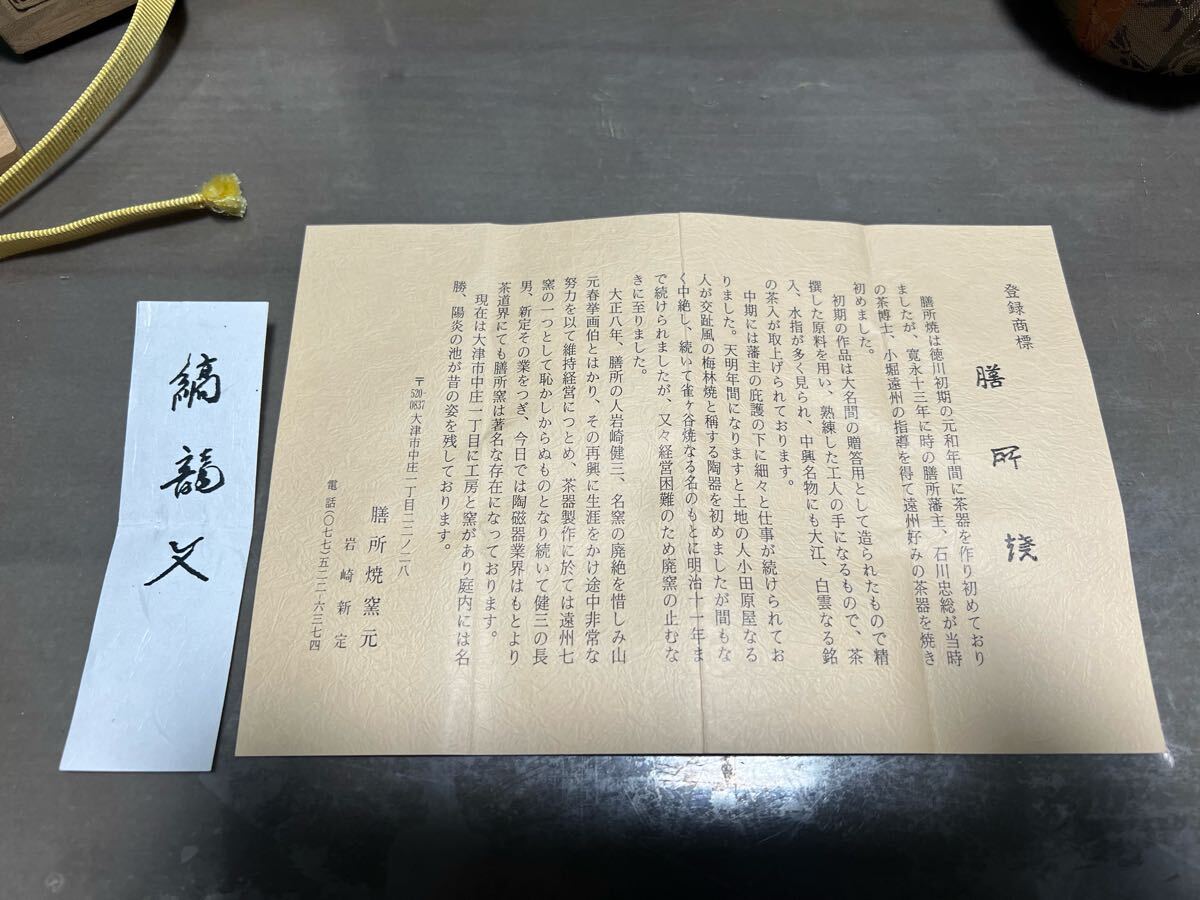 登録商標
膳所焼
膳所焼は徳川初期の元和年間に茶器を作り初めており
ましたが、寛永十三年に時の膳所藩主、石川忠総が当時
の茶博士、小堀遠州の指導を得て遠州好みの茶器を焼き
初めました。
初期の作品は大名間の贈答用として造られたもので精
撰した原料を用い、熟練した工人の手になるもので、茶
入、水指が多く見られ、中興名物にも大江、白雲なる銘
の茶入が取上げられております。
中期には藩主の庇護の下に細々と仕事が続けられてお
りました。天明年間になりますと土地の人小田原屋なる
人が交趾風の梅林焼と称する陶器を初めましたが間もな
く中絶し、続いて雀ヶ谷焼なる名のもとに明治十一年ま
で続けられましたが、又々経営困難のため廃窯の止むな
きに至りました。
大正八年、膳所の人岩崎健三、名窯の廃絶を惜しみ山
元春挙画伯とはかり、その再興に生涯をかけ途中非常な
努力を以て維持経営につとめ、茶器製作に於ては遠州七
窯の一つとして恥かしからぬものとなり続いて健三の長
男、新定その業をつぎ、今日では陶磁器業界はもとより
茶道界にても膳所窯は著名な存在になっております。
現在は大津市中庄一丁目に工房と窯があり庭内には名
勝、陽炎の池が昔の姿を残しております。
〒520-0837大津市中庄一丁目二二ノ二八
膳所焼窯元
岩崎新定
電話(〇七七)五二二-六三七四
縞龍文